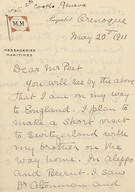 Paquebot Orenoque
M M
MESSAGERIES
MARITIMES
May 20th 1911
Dear Mr Peet
You will see by the above
that I am on my way
to England. I plan to
make a short visit
to Switzerland with
my brother on the
way home. In Aleppo
and Beirut. I saw
Dr. Altounian and